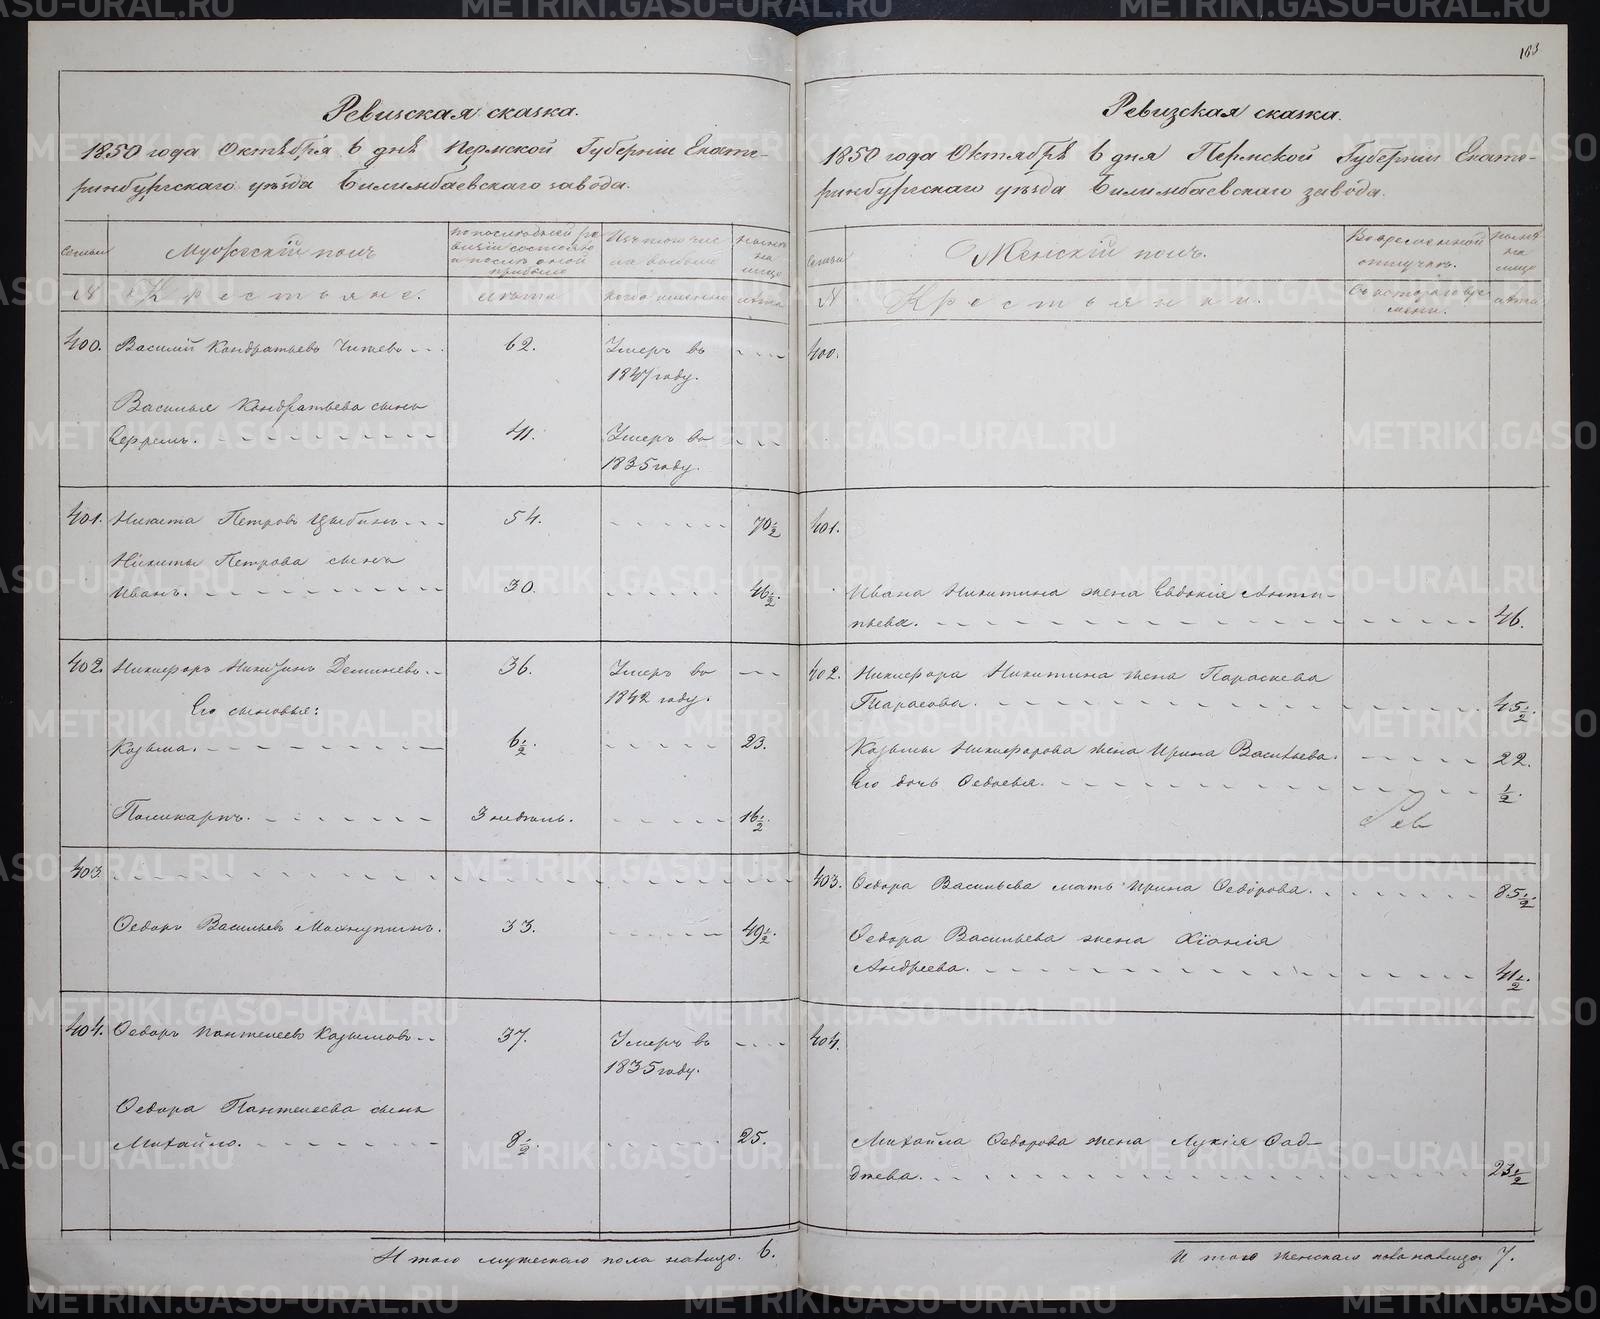 163
Ревизская сказка.
1850 года Октября 6 дня Пермской Губернии Екате-
ринбургскаго уѣзда Билимбаевскаго завода.
Семьи
Мужескій полъ
По последней ре-
визіи состояло
и послѣ оной
прибыло
Изъ того чис-
ла выбыло
Нынѣ
на
лицо
№
Крестьяне.
Лѣта
Когда именно
лѣта
400. Василій Кондратьевъ Чижевъ 62. Умеръ въ
1847 году.
Василья Кондратьева сынъ
Ефремъ. 41. Умеръ въ
1835 году.
401. Никита Петровъ Цыбинъ 54. 70 1/2
Никиты Петрова сынъ
Иванъ. 30. 46 1/2.
402. Никифоръ Никитинъ Деминевъ 36. Умеръ въ
1842 году.
Его сыновья:
Козьма. 6 1/2. 23.
Поликарпъ. 3 недѣль. 16 1/2.
403.
Ѳедоръ Васильевъ Махнутинъ. 33. 49 1/2.
404. Ѳедоръ Пантелеевъ Казымовъ 37. Умеръ въ
1835 году.
Ѳедора Пантелеева сынъ
Михайло. 8 1/2. 25.
Итого мужескаго пола налицо. 6.
Ревизская сказка.
1850 года Октября 6 дня Пермской Губерніи Екате-
ринбургскаго уѣзда Билимбаевскаго завода.
Семьи
Женскій полъ.
Во временной
отлучкѣ.
Нынѣ
на
лицо
№
Крестьянки.
Съ котораго вре-
мени.
лѣта
400.
401.
Ивана Никитина жена Евдокія Анти-
пьева. 46.
402. Никифора Никитина жена Параскева
Тарасова. 45 1/2.
Козьмы Никифорова жена Ирина Васильева. 22.
Его дочь Ѳедосья. 1/2.
Рев
403. Ѳедора Васильева мать Ирина Ѳедорова. 85 1/2.
Ѳедора Васильева жена Хіонія
Андреева. 41 1/2.
404.
Михайла Ѳедорова жена Лукія Ѳад-
дѣева. 23 1/2
Итого женскаго пола налицо. 7.
METRIKI.GASO-URAL.RU